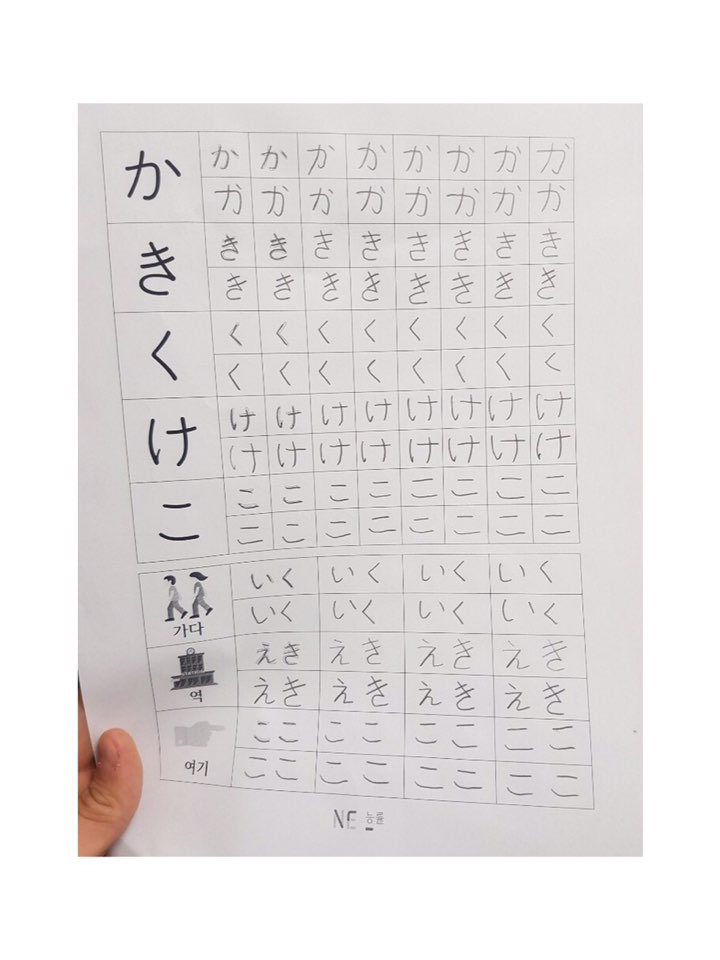 か か か か か か か か か
か か か か か か か か
き き き き き き き き き
き き き き き き き き
く く く く く く く く く
く く く く く く く く
け け け け け け け け け
け け け け け け け け
こ こ こ こ こ こ こ こ こ
こ こ こ こ こ こ こ こ
いく いく いく いく
いく いく いく いく
가다
えき えき えき えき
えき えき えき えき
역
ここ ここ ここ ここ
ここ ここ ここ ここ
여기
NE 능률